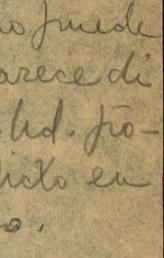 no puede
arece di
. Ud. pro-
dicto en
o.